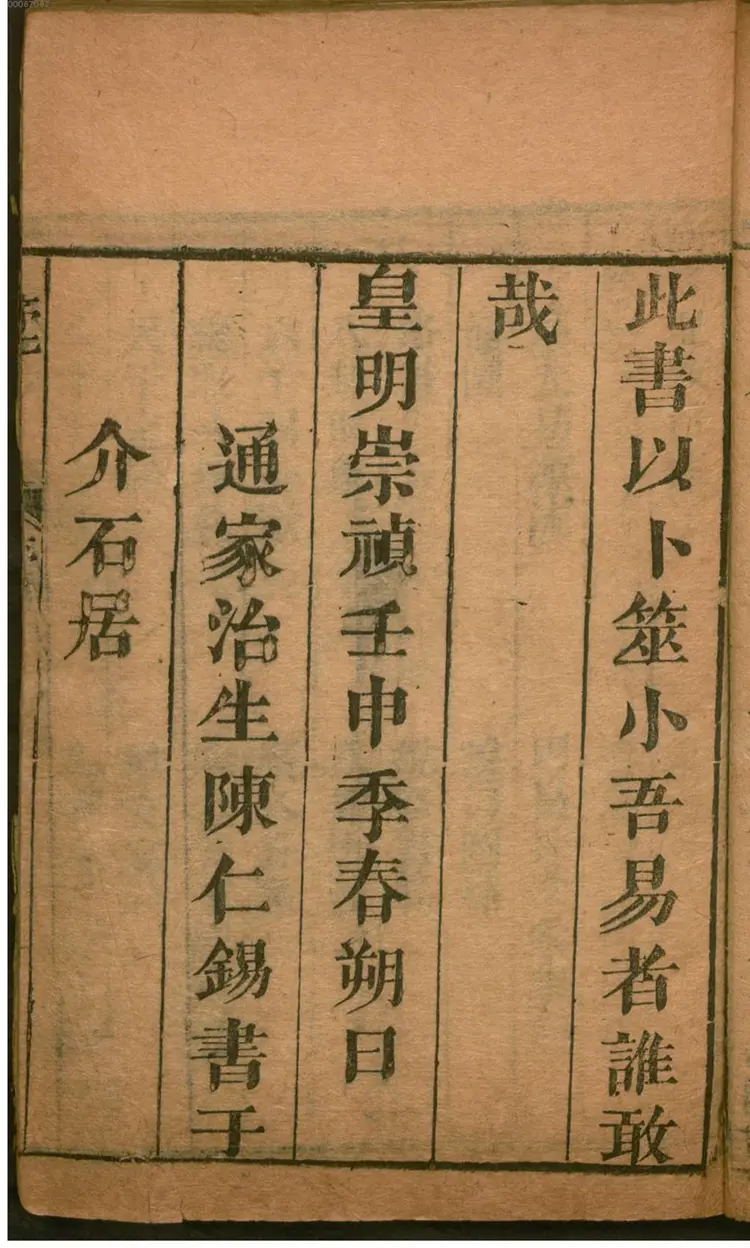 此書以卜筮小吾易者誰敢
哉
皇明崇禎壬申季春朔日
通家治生陳仁錫書于
介石居
00067087